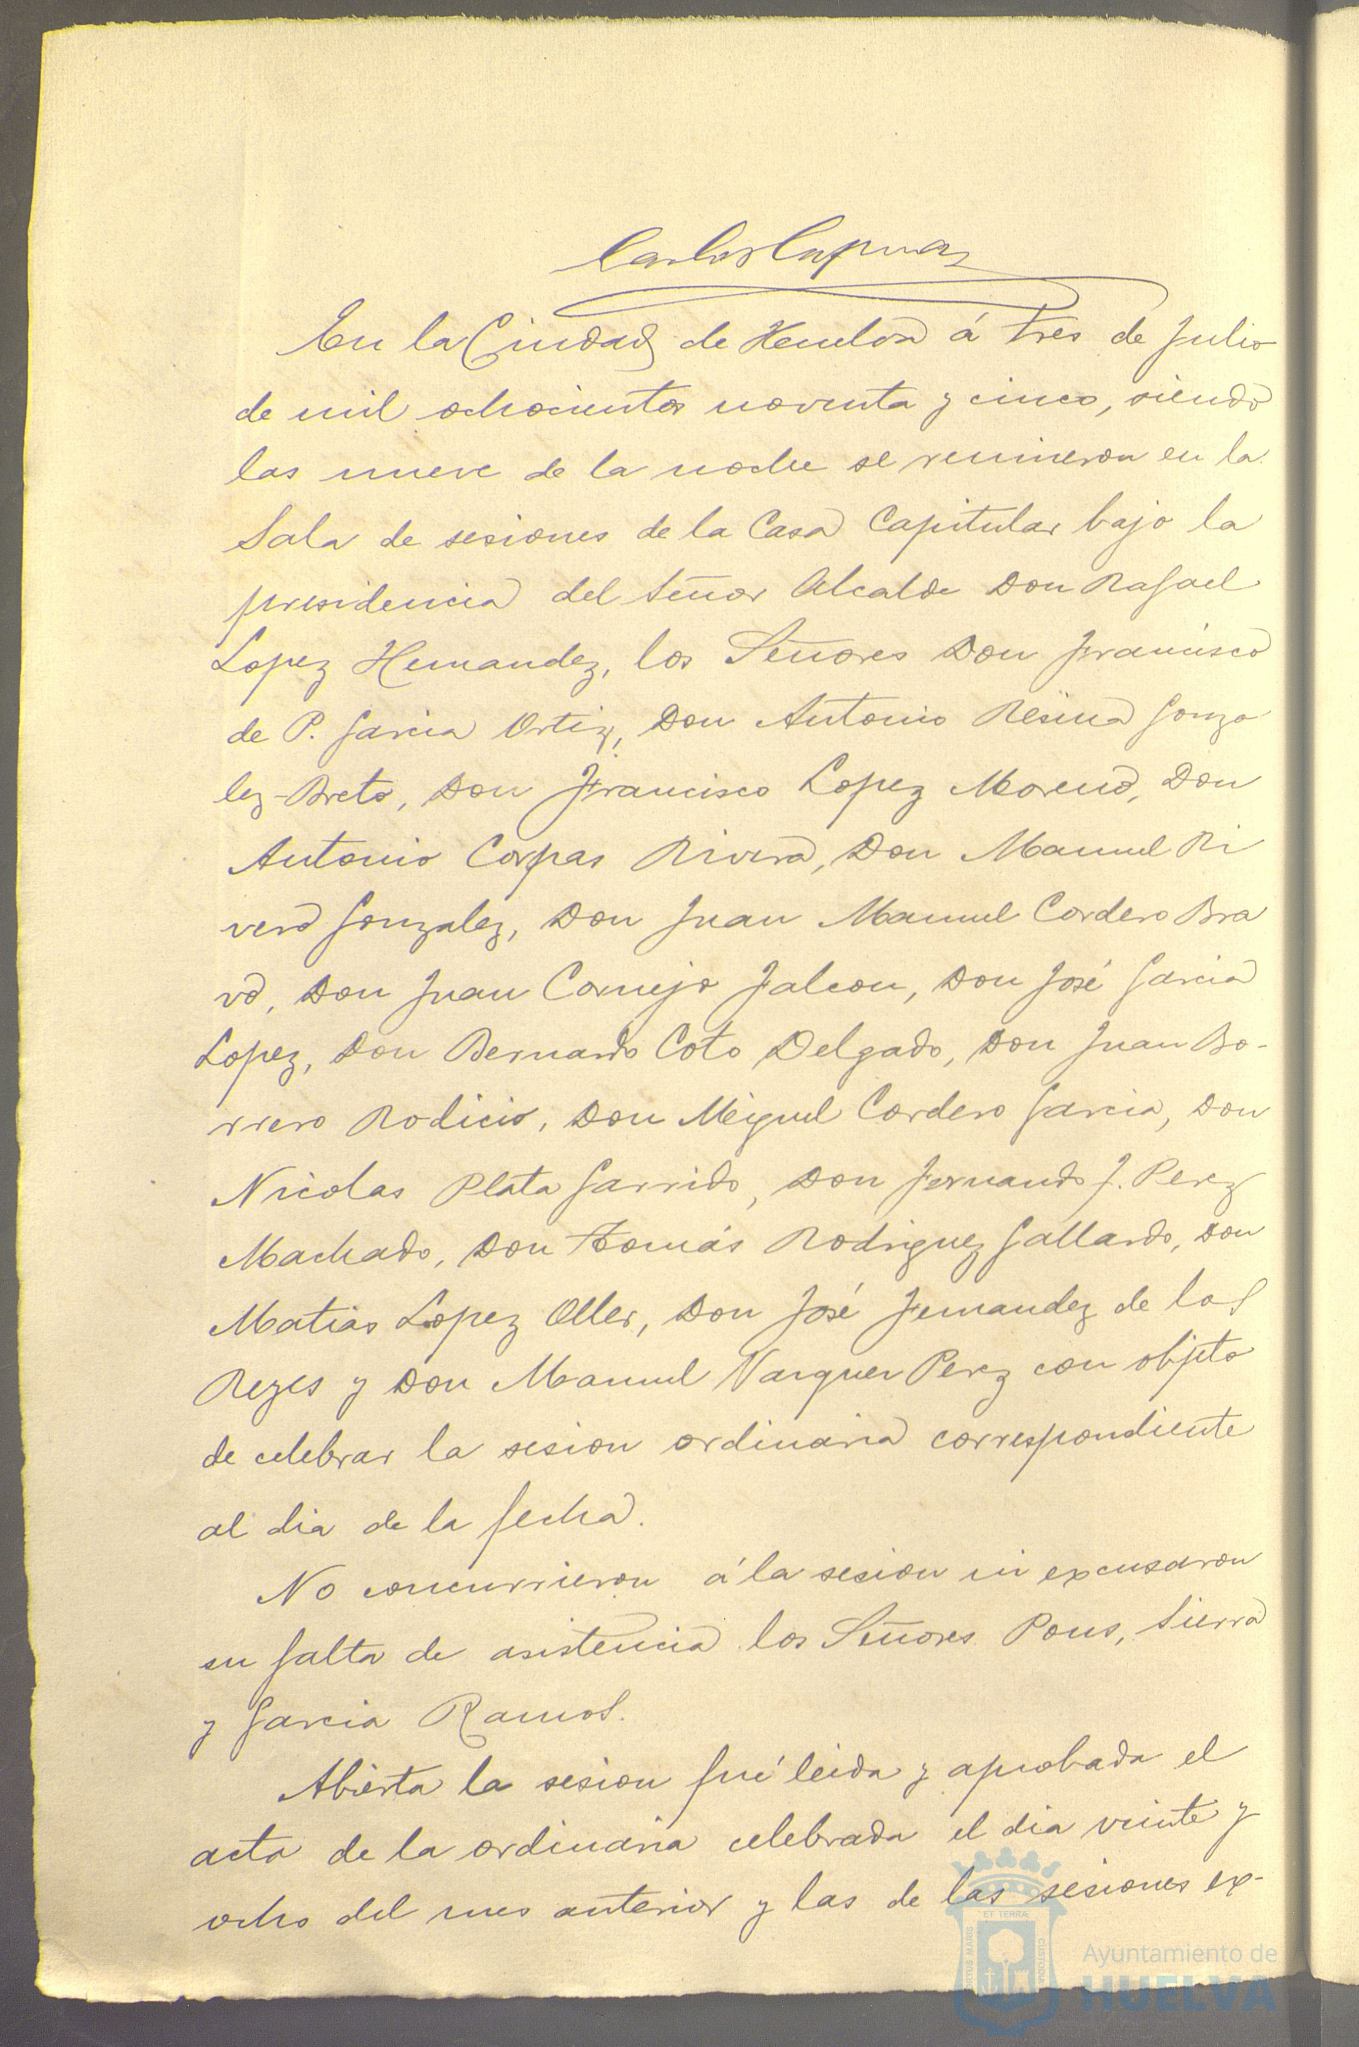 Carlos
En la Ciudad de Huelva á tres de Julio
de mil ochocientos noventa y cinco, siendo
las nueve de la noche se reunieron en la
Sala de sesiones de la Casa Capitular bajo la
presidencia del Señor Alcalde Don Rafael
Lopez Hernandez, los Señores Don Francisco
de P. Garcia Ortiz, Don Antonio Resina Gonza
lez-Breto, Don Francisco Lopez Moreno, Don
Antonio Corpas Rivera, Don Manuel Ri
vero Gonzalez, Don Juan Manuel Cordero Bra
vo, Don Juan Cornejo Falcon, Don José Garcia
Lopez, Don Bernardo Coto Delgado, Don Juan Bo-
rrero Rodicio, Don Miguel Cordero Garcia, Don
Nicolas Plata Garrido, Don Fernando J. Perez
Machado, Don Tomás Rodriguez Gallardo, Don
Matias Lopez Oller, Don José Fernandez de los
Reyes y Don Manuel Vazquez Perez con objeto
de celebrar la sesion ordinaria correspondiente
al dia de la fecha.
No concurrieron á la sesion ni excusaron
su falta de asistencia los Señores Pons, Sierra
y Garcia Ramos.
Abierta la sesion fué leida y aprobada el
acta de la ordinaria celebrada el dia veinte y
ocho del mes anterior y las de las sesiones ex-
ET TERRÆ
PORTUS MARIS
CUSTODIA
Ayuntamiento de
HUELVA